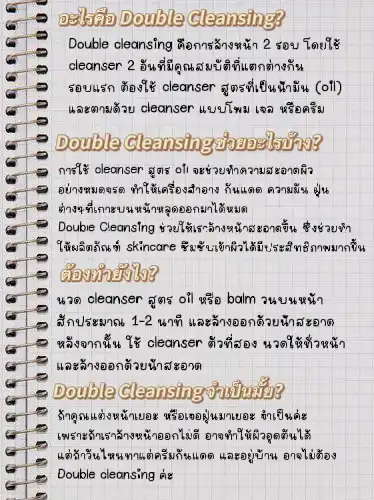 อะไรคือ Double Cleansing?
Double cleansing คือการล้างหน้า 2 รอบ โดยใช้
cleanser 2 อันที่มีคุณสมบัติที่แตกต่างกัน
รอบแรก ต้องใช้ cleanser สูตรที่เป็นน้ำมัน (oil)
และตามด้วย cleanser แบบโฟม เจล หรือครีม
Double Cleansing ช่วยอะไรบ้าง?
การใช้ cleanser สูตร oil จะช่วยทำความสะอาดผิว
อย่างหมดจรด ทำให้เครื่องสำอาง กันแดด ความมัน ฝุ่น
ต่างๆที่เกาะบนหน้าหลุดออกมาได้หมด
Double Cleansing ช่วยให้เราล้างหน้าสะอาดขึ้น ซึ่งช่วยทำ
ให้ผลิตภัณฑ์ skincare ซึมซับเข้าผิวได้มีประสิทธิภาพมากขึ้น
ต้องทำยังไง?
นวด cleanser สูตร oil หรือ balm วนบนหน้า
สักประมาณ 1-2 นาที และล้างออกด้วยน้ำสะอาด
หลังจากนั้น ใช้ cleanser ตัวที่สอง นวดให้ทั่วหน้า
และล้างออกด้วยน้ำสะอาด
Double Cleansing จำเป็นมั้ย?
ถ้าคุณแต่งหน้าเยอะ หรือเจอฝุ่นมาเยอะ จำเป็นค่ะ
เพราะถ้าเราล้างหน้าออกไม่ดี อาจทำให้ผิวอุดตันได้
แต่ถ้าวันไหนทาแต่ครีมกันแดด และอยู่บ้าน อาจไม่ต้อง
Double cleansing ค่ะ